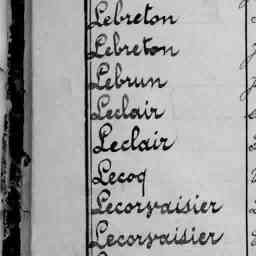 Lebreton
Lebreton
Lebrun
Leclair
Leclair
Lecoq
Lecorvaisier
Lecorvaisier